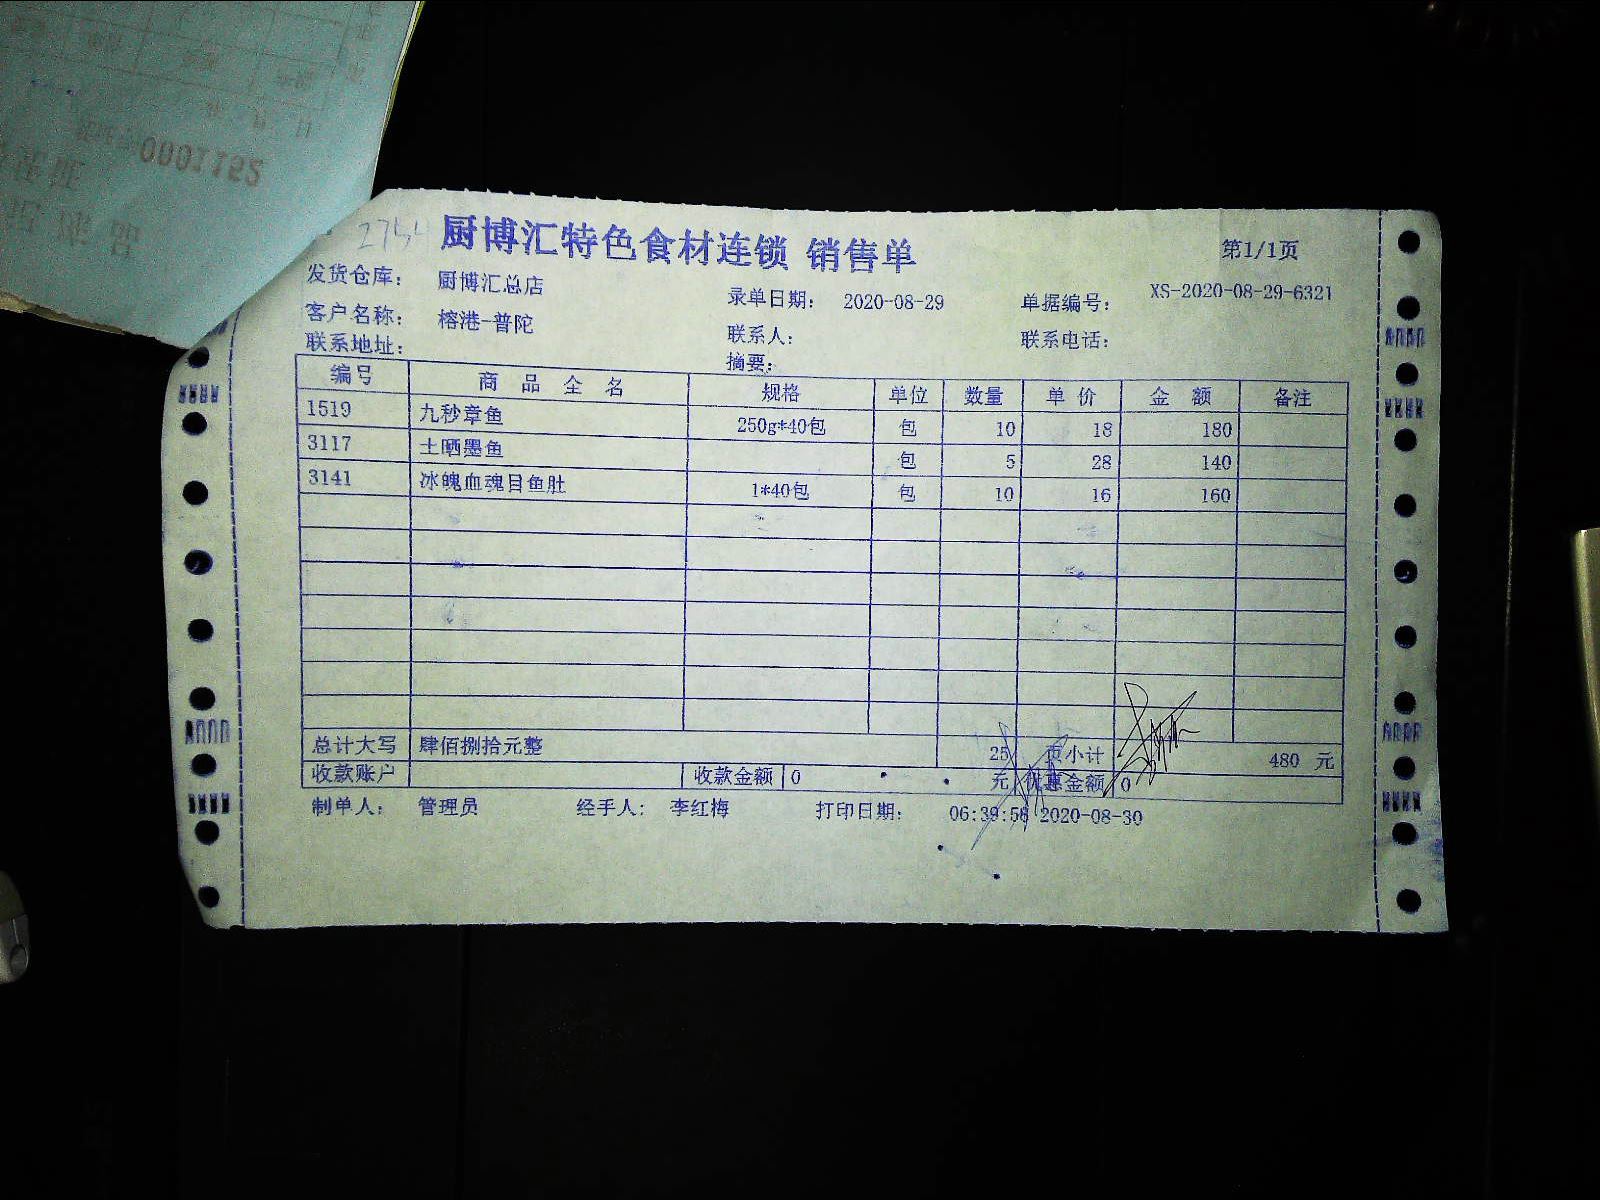 0001152
厨博汇特色食材连锁 销售单
第1/1页
发货仓库： 厨博汇总店
录单日期： 2020-08-29
单据编号： XS-2020-08-29-6321
客户名称： 榕港-普陀
联系人：
联系电话：
联系地址：
摘要：
编号 商 品 全 名 规格 单位 数量 单 价 金 额 备注
1519 九秒章鱼 250g*40包 包 10 18 180
3117 土晒墨鱼 包 5 28 140
3141 冰魄血魂目鱼肚 1*40包 包 10 16 160
总计大写 肆佰捌拾元整 25 页小计 480 元
收款账户 收款金额 0 元 优惠金额 0
制单人： 管理员 经手人： 李红梅 打印日期： 06:39:56 2020-08-30